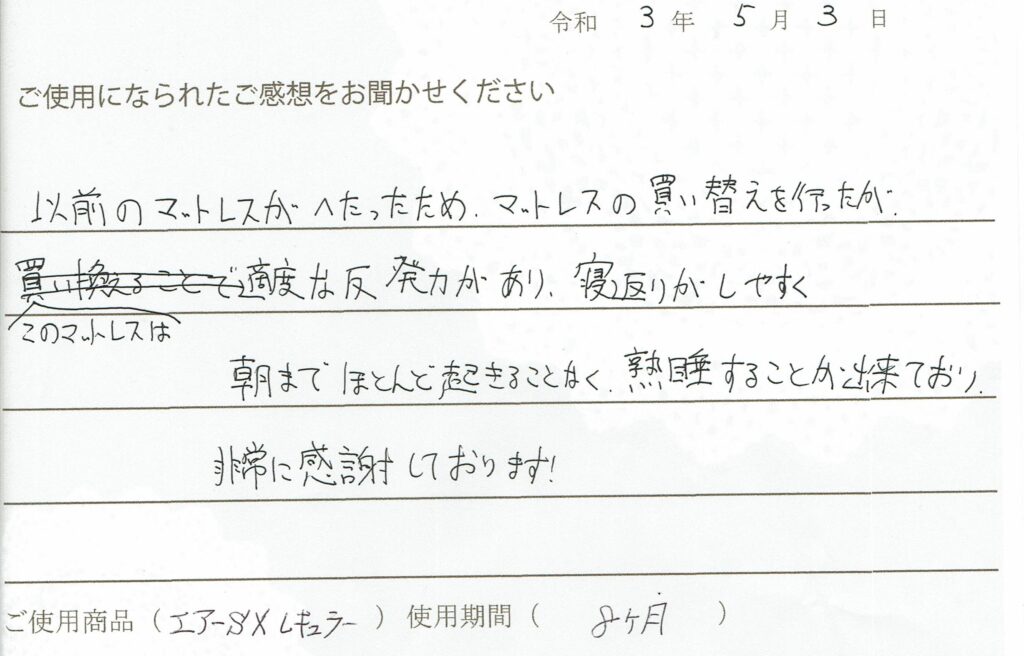 令和 3 年 5 月 3 日
ご使用になられたご感想をお聞かせください
以前のマットレスがへたったため、マットレスの買い替えを行ったが、
買い換えることで適度な反発力があり、寝返りがしやすく
このマットレスは
朝までほとんど起きることなく、熟睡することが出来ており、
非常に感謝しております!
ご使用商品(エアーSXレギュラー)使用期間( 8ヶ月 )